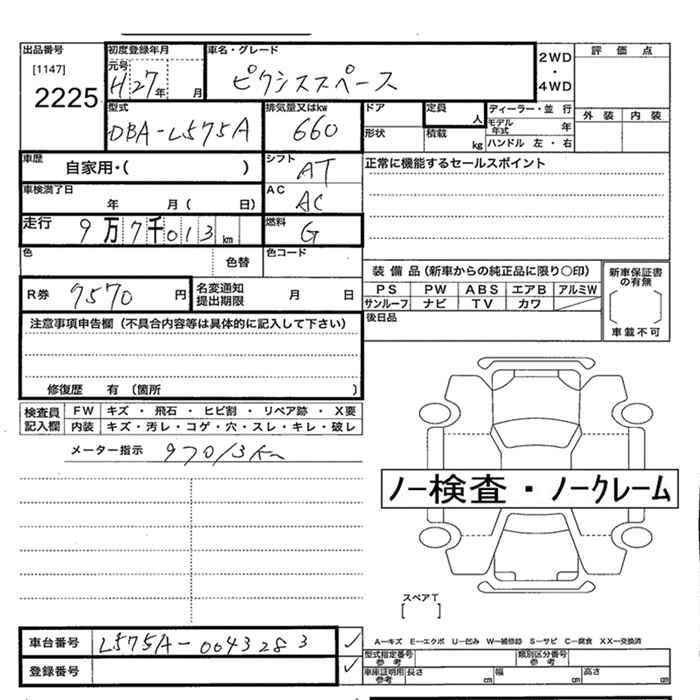 出品番号 初度登録年月 車名・グレード 2WD ・ 4WD 評価点
[1147] 元号 H27年 月 ピクシススペース
2225 外装 内装
型式 排気量又はkw ドア 定員 人 ディーラー・並行
DBA-L575A 660 モデル年式 年
形状 積載 kg ハンドル 左・右
車歴 自家用・( ) シフト AT 正常に機能するセールスポイント
車検満了日 年 月( 日) AC AC
走行 9万7千013km 燃料 G
色 色替 色コード
装備品(新車からの純正品に限り○印) 新車保証書の有無
R券 7570円 名変通知提出期限 月 日 PS PW ABS エアB アルミW
サンルーフ ナビ TV カワ
[ ]
注意事項申告欄(不具合内容等は具体的に記入して下さい) 後日品 車載不可
修復歴 有(箇所 )
検査員記入欄 FW キズ・飛石・ヒビ割・リペア跡・X要
内装 キズ・汚レ・コゲ・穴・スレ・キレ・破レ
メーター指示 97013km
ノー検査・ノークレーム
スペアT
[ ]
車台番号 L575A-0043283 ✓
A-キズ E-エクボ U-凹み W-補修跡 S-サビ C-腐食 XX-交換済
登録番号 ✓ 型式指定番号参考 類別区分番号参考
車庫証明用参考 長さ cm 幅 cm 高さ cm